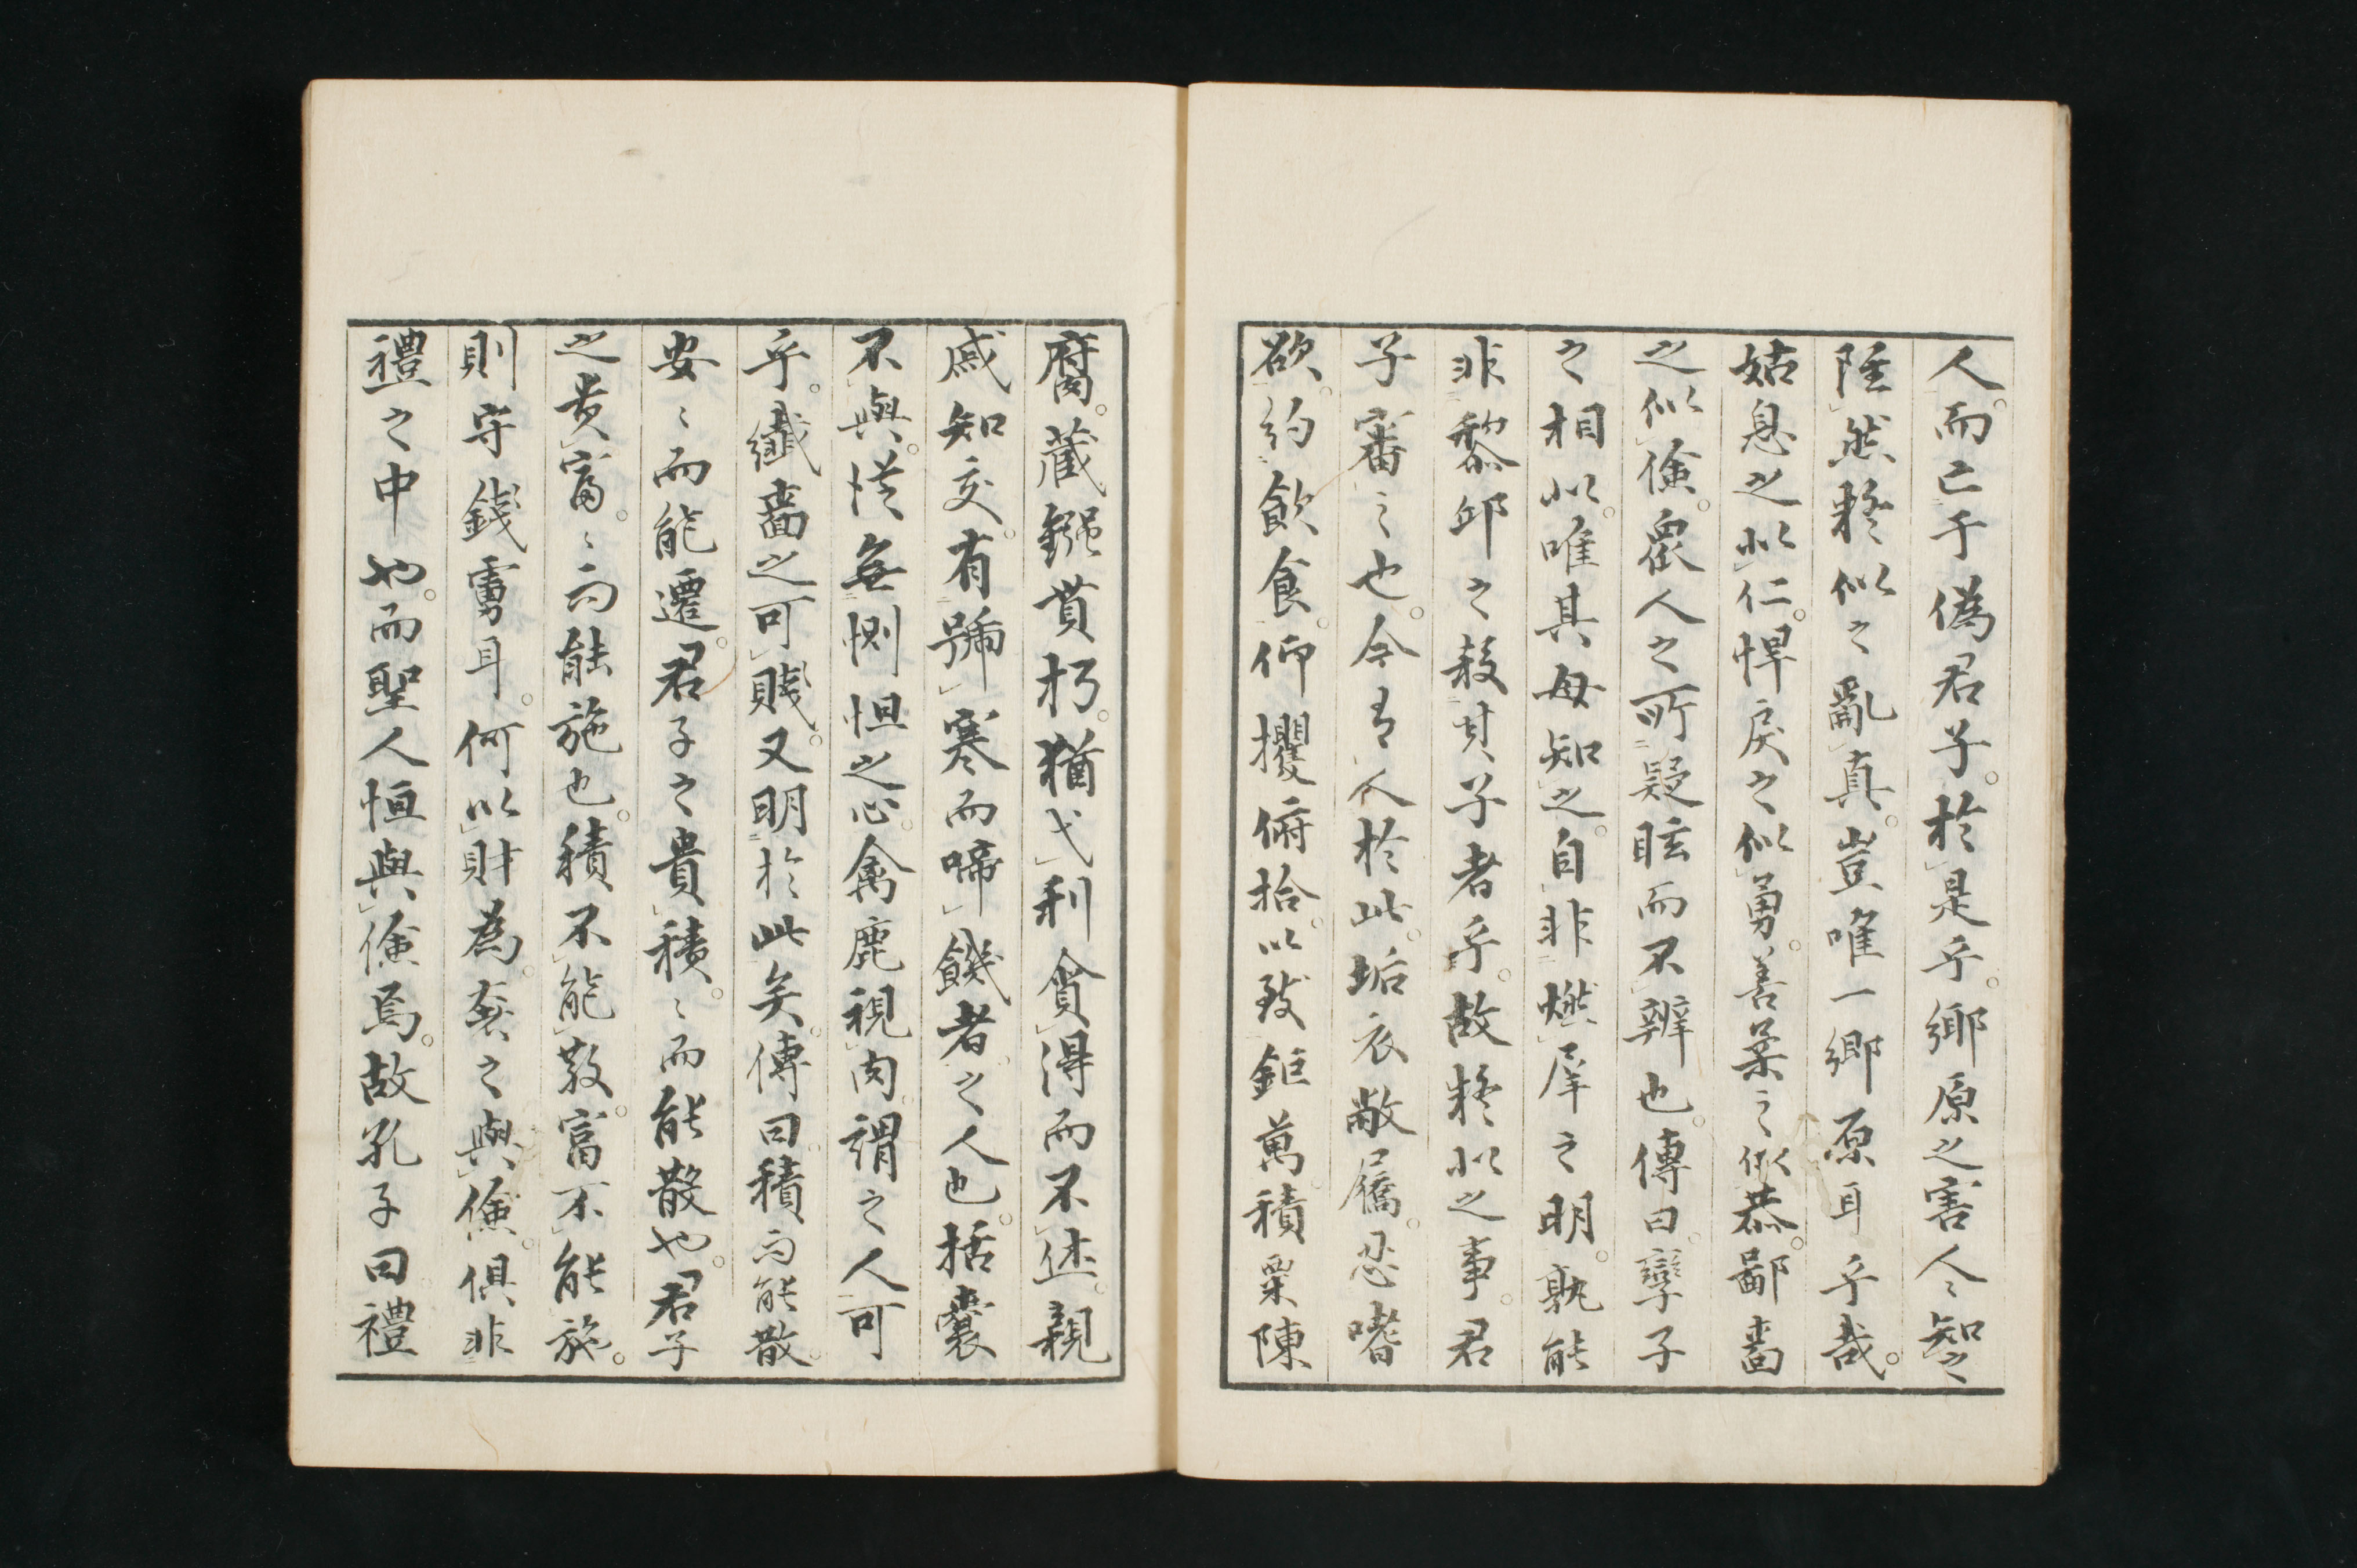 人。而亡于偽君子。於是乎。鄉原之害人〻知之
陘然矝似之亂真。豈唯一鄉原耳乎哉。
姑息之似仁。悍戾之似勇。善柔之似恭。鄙嗇
之似儉。眾人之所疑眩而不辨也。傳曰。孿子
之相似。唯其母知之。自非燃犀之明。孰能
非黎邱之殺其子者乎。故矝似之事。君
子審之也。今有人於此。垢衣敝屩。忍嗜
欲。約飲食。仰攫俯拾。以致鉅萬。積粟陳
腐。藏鏹貫朽。猶弋利貪得而不
親
戚知交。有號寒而啼饑者之人也。括囊
不與。慌無惻怛之心。禽鹿視肉。謂之人可
乎。纖嗇之可賤。又明於此矣。傳曰。積而能散。
安〻而能遷。君子之貴積。〻而能散也。君子
之貴富。〻而能施也。積不能散。富不能施。
則守錢虜耳。何以財為。奢之與儉。俱非
禮之中也。而聖人恒與儉焉。故孔子曰。禮